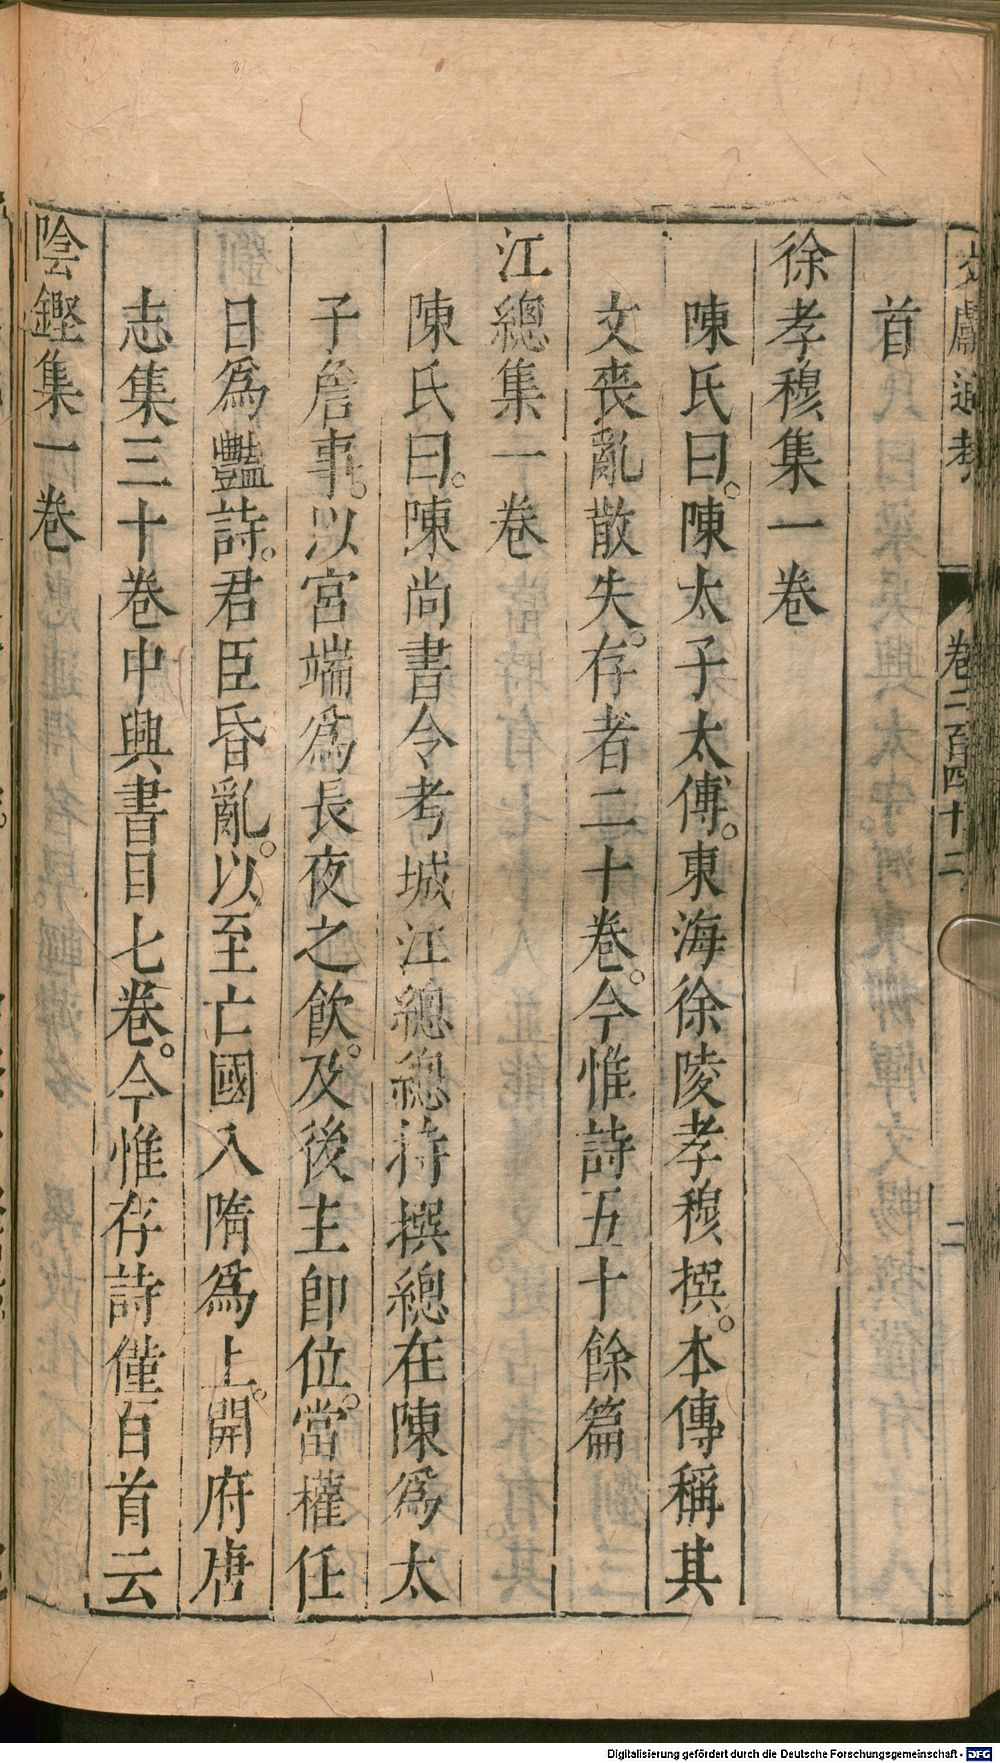 文獻通考 卷二百四十二 二
首
徐孝穆集一卷
陳氏曰。陳太子太傅。東海徐陵孝穆撰。本傳稱其
文喪亂散失。存者二十卷。今惟詩五十餘篇
江總集一卷
陳氏曰。陳尚書令考城江總總持撰總在陳爲太
子詹事。以宮端爲長夜之飲。及後主卽位。當權任
日爲豔詩。君臣昏亂。以至亡國入隋爲上。開府唐
志集三十卷中興書目七卷。今惟存詩僅百首云
陰鏗集一卷
Digitalisierung gefördert durch die Deutsche Forschungsgemeinschaft - DFG